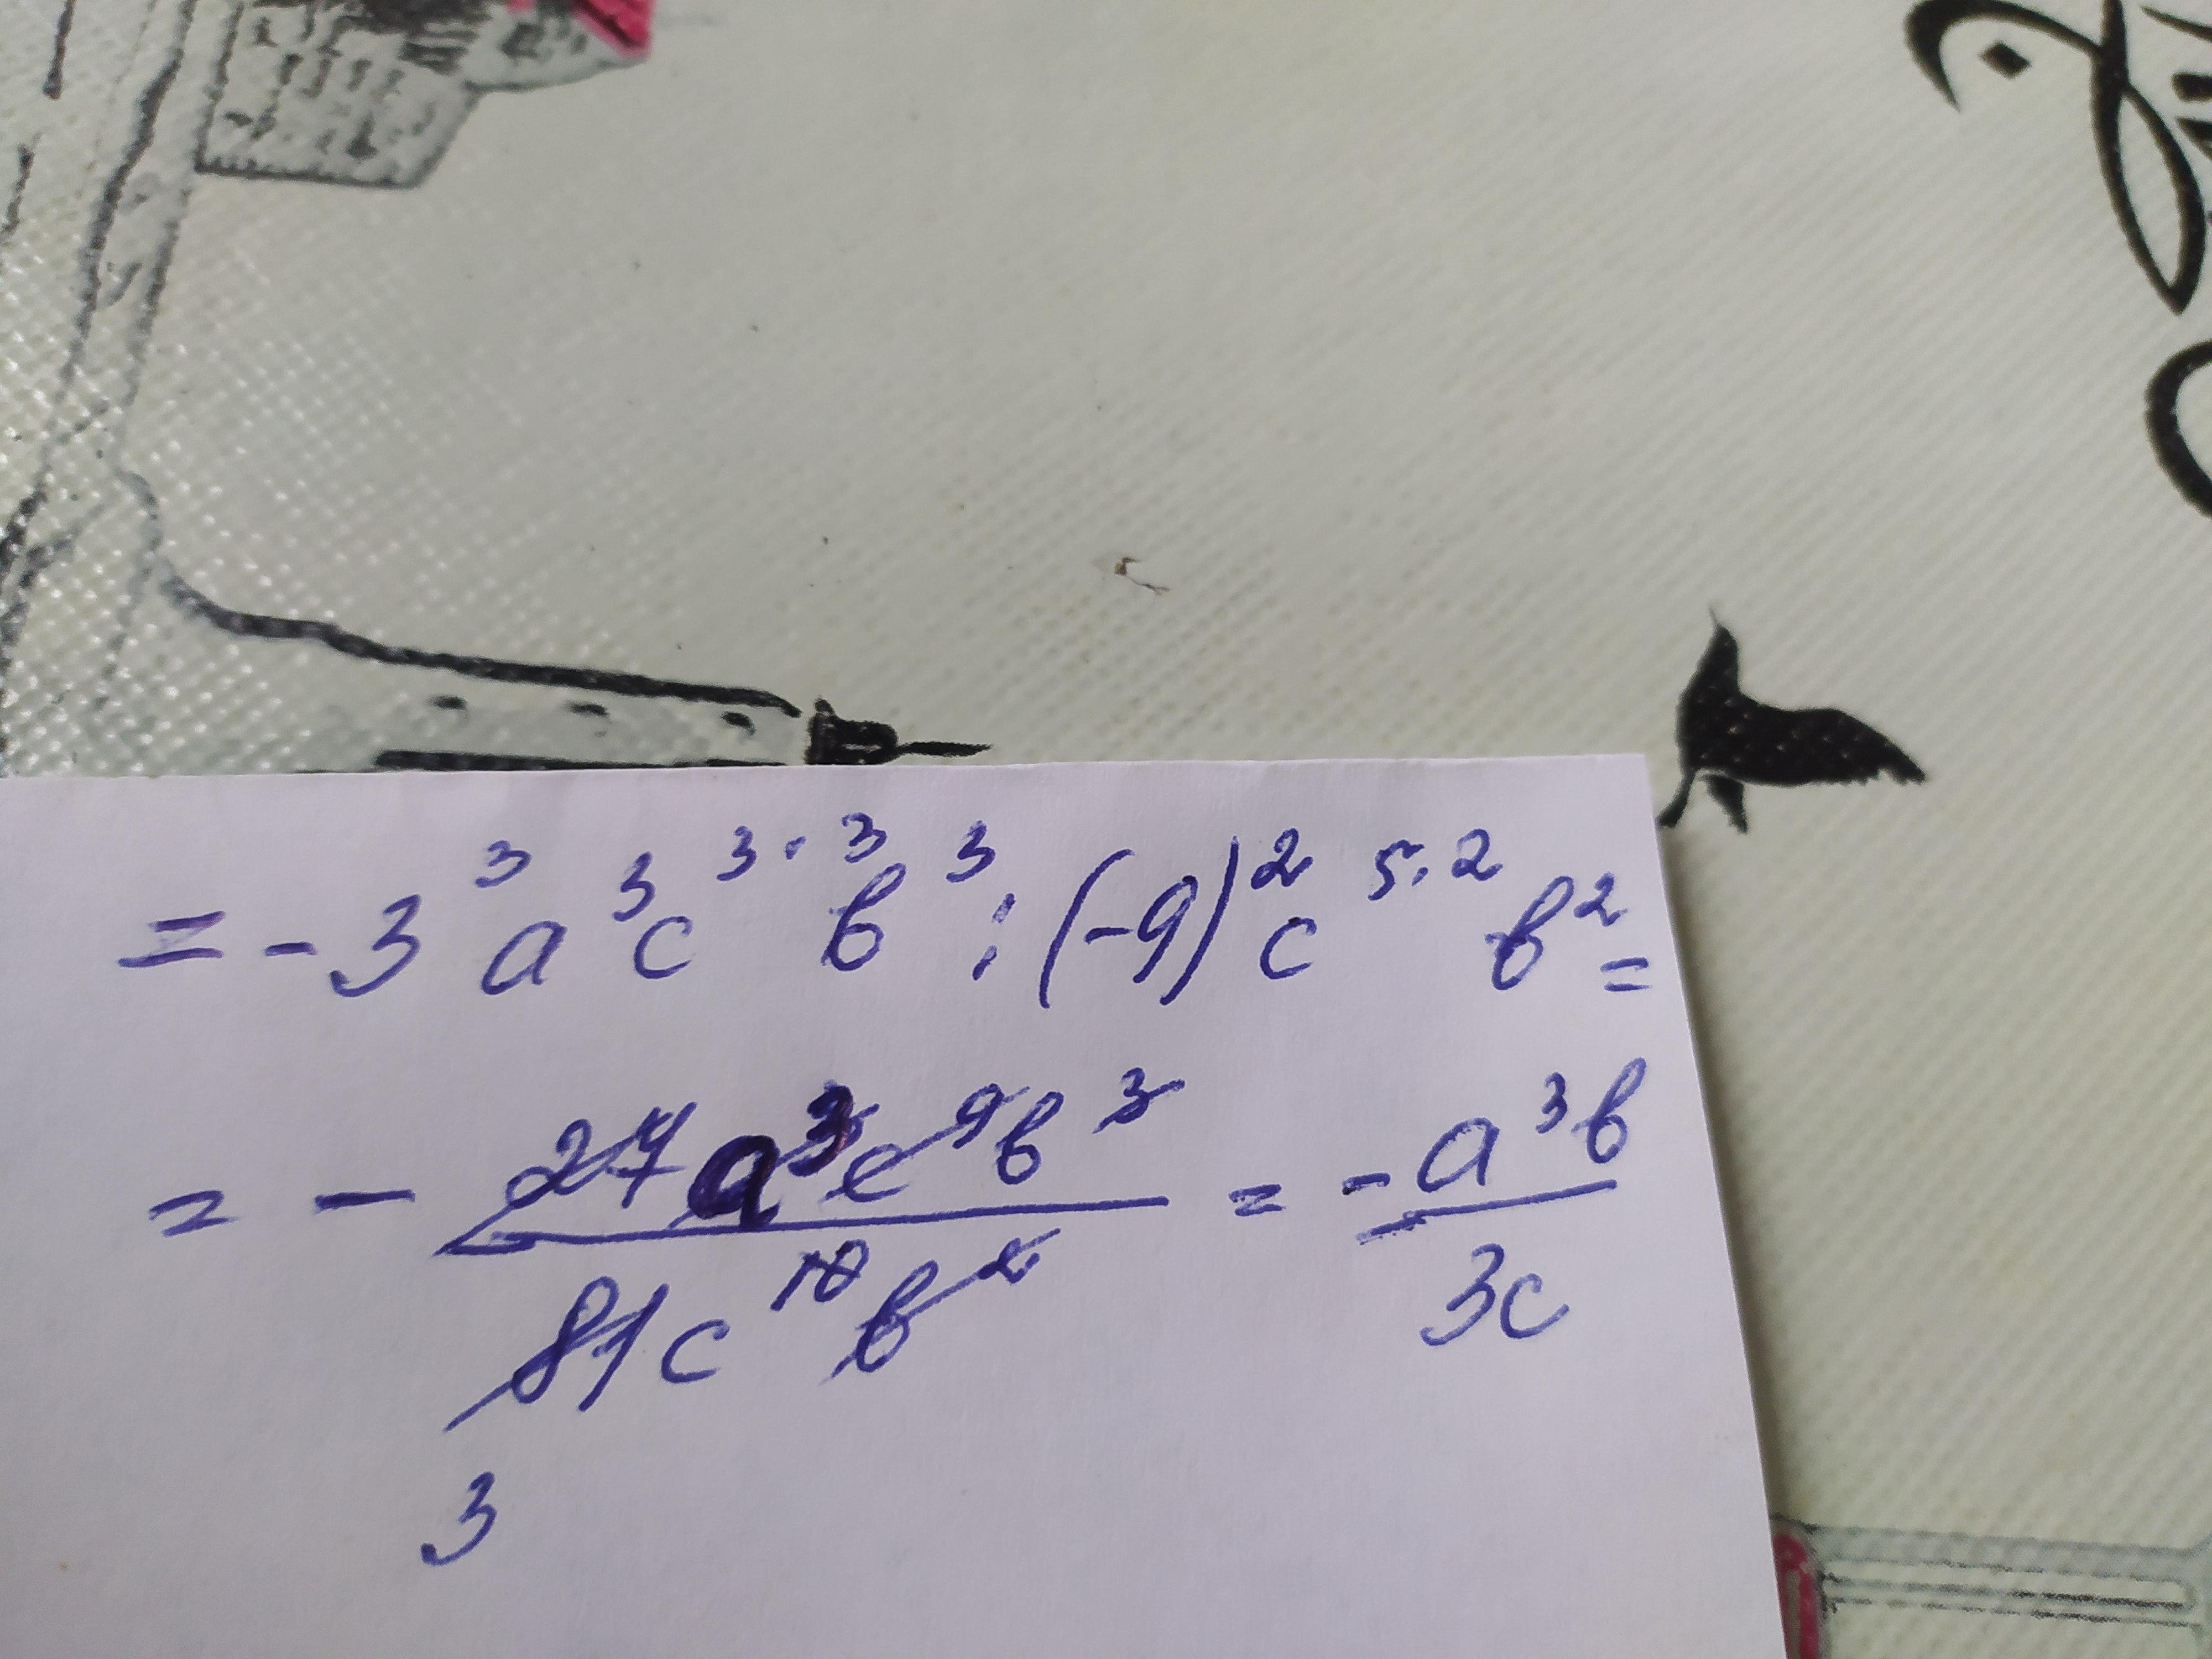 = - 3³ a³ c³·³ b³ : (-9)² c⁵·² b² =
= - 27a³c⁹b³ / 81c¹⁰b² = - a³b / 3c
3